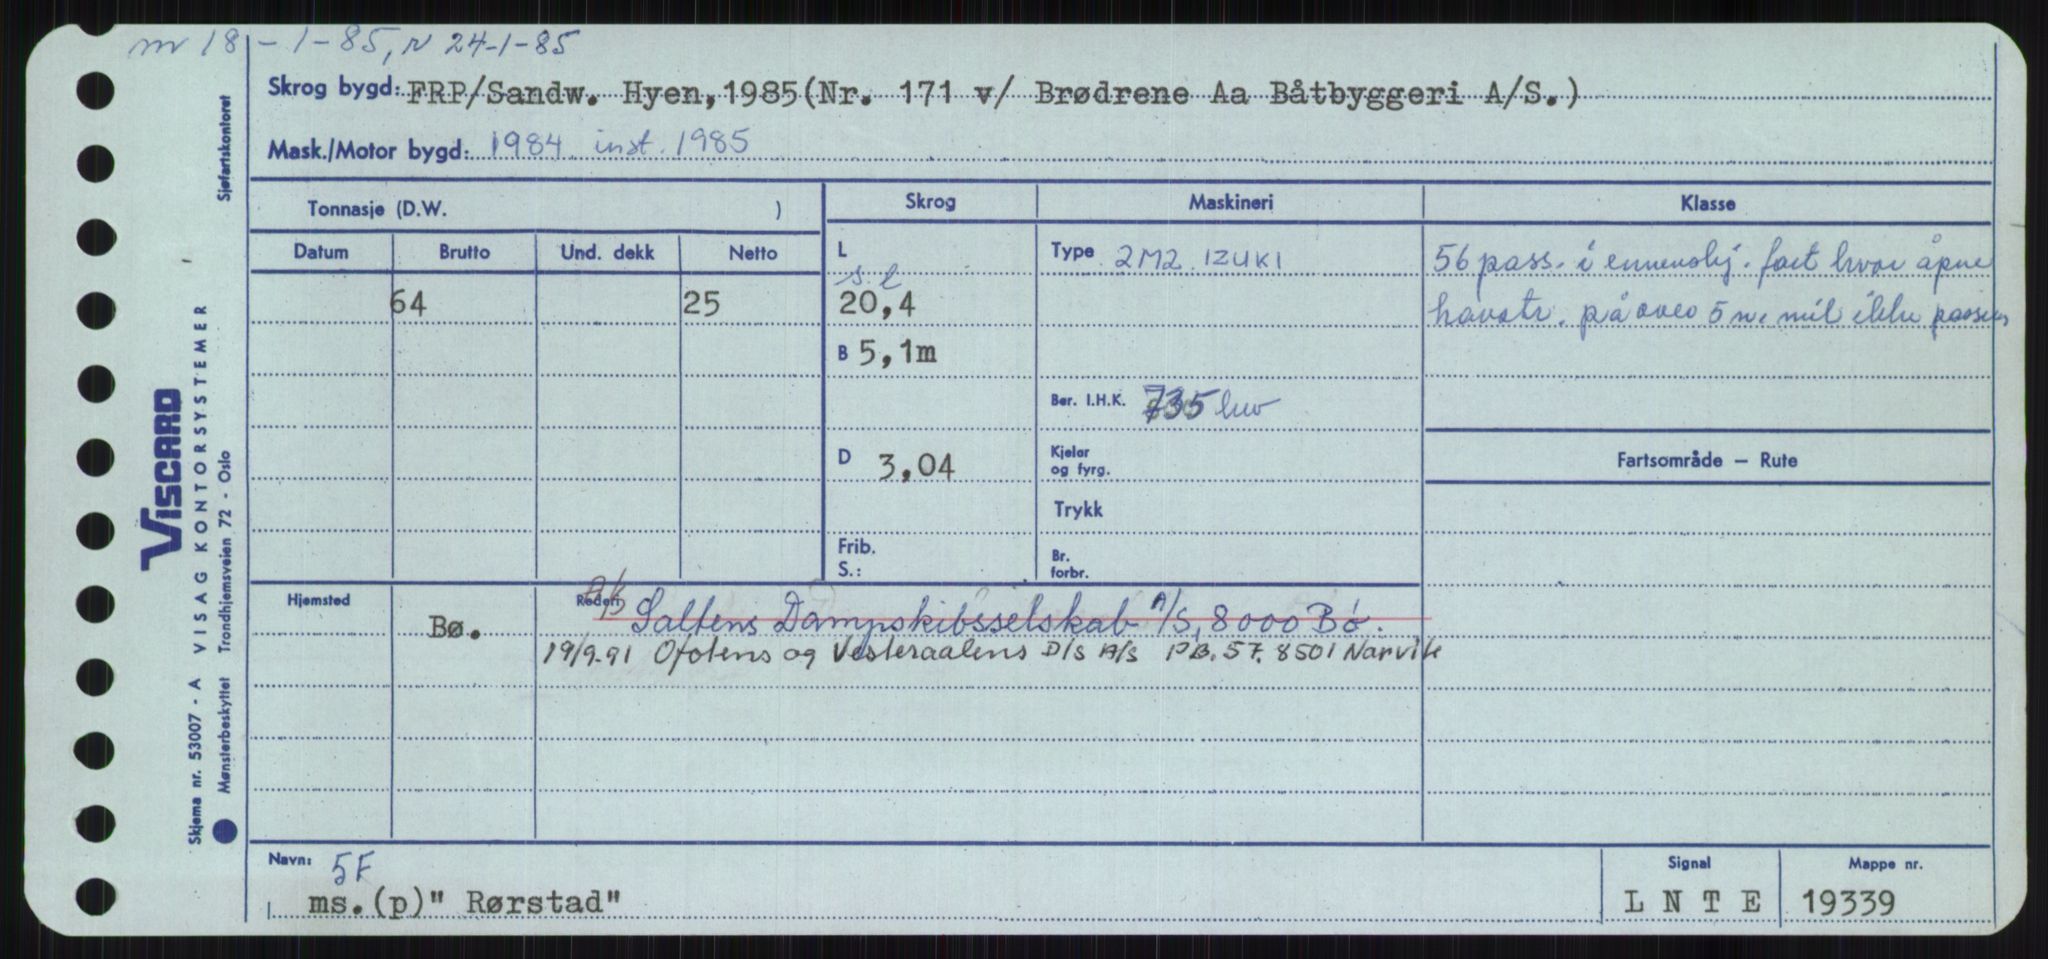 m 18-1-85, N 24-1-85
Skrog bygd: FRP/Sandw. Hyen, 1985(Nr. 171 v/ Brødrene Aa Båtbyggeri A/S.)
Mask./Motor bygd: 1984 inst. 1985
Sjøfartskontoret
VISCARD
VISAG KONTORSYSTEMER
Trondhjemsveien 72 - Oslo
Skjema nr. 53007 - A
Mønsterbeskyttet
Tonnasje (D.W. )
Datum Brutto Und. dekk Netto
64 25
Skrog
L
s.l
20,4
B 5,1m
D 3,04
Frib.
S.:
Maskineri
Type 2M2 IZUKI
Ber. I.H.K. 735 kw
Kjeler
og fyrg.
Trykk
Br.
forbr.
Klasse
56 pass. i fart hvor åpne
havstr. på over 5 n. mil ikke
Fartsområde — Rute
Hjemsted
Bø.
Rederi
A/S Saltens Dampskibsselskab A/S, 8000 Bó.
19/9-91 Ofotens og Vesteraalens D/S A/S P.B. 57. 8501 Narvik
Navn: 5F
ms.(p)" Rørstad"
Signal
L N T E
Mappe nr.
19339